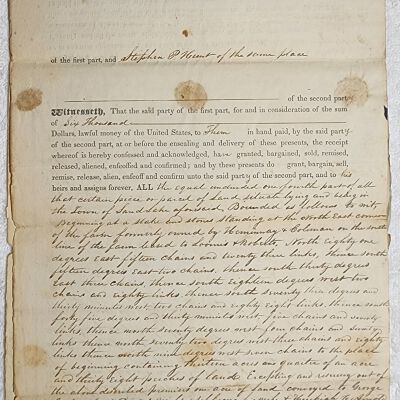 of the first part, and Stephen P Hunt of the same place
of the second part,
Witnesseth, That the said party of the first part, for and in consideration of the sum
of Six Thousand
Dollars, lawful money of the United States, to Them in hand paid, by the said party
of the second part, at or before the ensealing and delivery of these presents, the receipt
whereof is hereby confessed and acknowledged, have granted, bargained, sold, remised,
released, aliened, enfeoffed and confirmed; and by these presents do grant, bargain, sell,
remise, release, alien, enfeoff and confirm unto the said party of the second part, and to his
heirs and assigns forever, ALL the equal undivided one fourth part of all
that certain piece or parcel of Land situate lying and being in
the Town of and State aforesaid, Bounded as follows To wit,
Beginning at a stake and stones standing at the North East corner
of the farm formerly owned by Heminway & Coleman on the south
line of the farm to & North Eighty one
degrees East fifteen chains and twenty three links, thence South
fifteen degrees East two chains, thence South thirty degrees
East three chains, thence south Eighteen degrees west two
chains and eighty links, thence south seventy three degrees and
thirty minutes west two chains and eighty Eight links, thence south
forty five degrees and thirty minutes west five chains and ninety
links, thence north seventy degrees west four chains and ninety
links, thence north seventy two degrees west three chains and eighty
links thence north nine degrees west seven chains to the place
of beginning containing thirteen acres one quarter of an acre
and thirty Eight perches of land. Excepting and reserving out of
the above described premises one acre of land conveyed to George